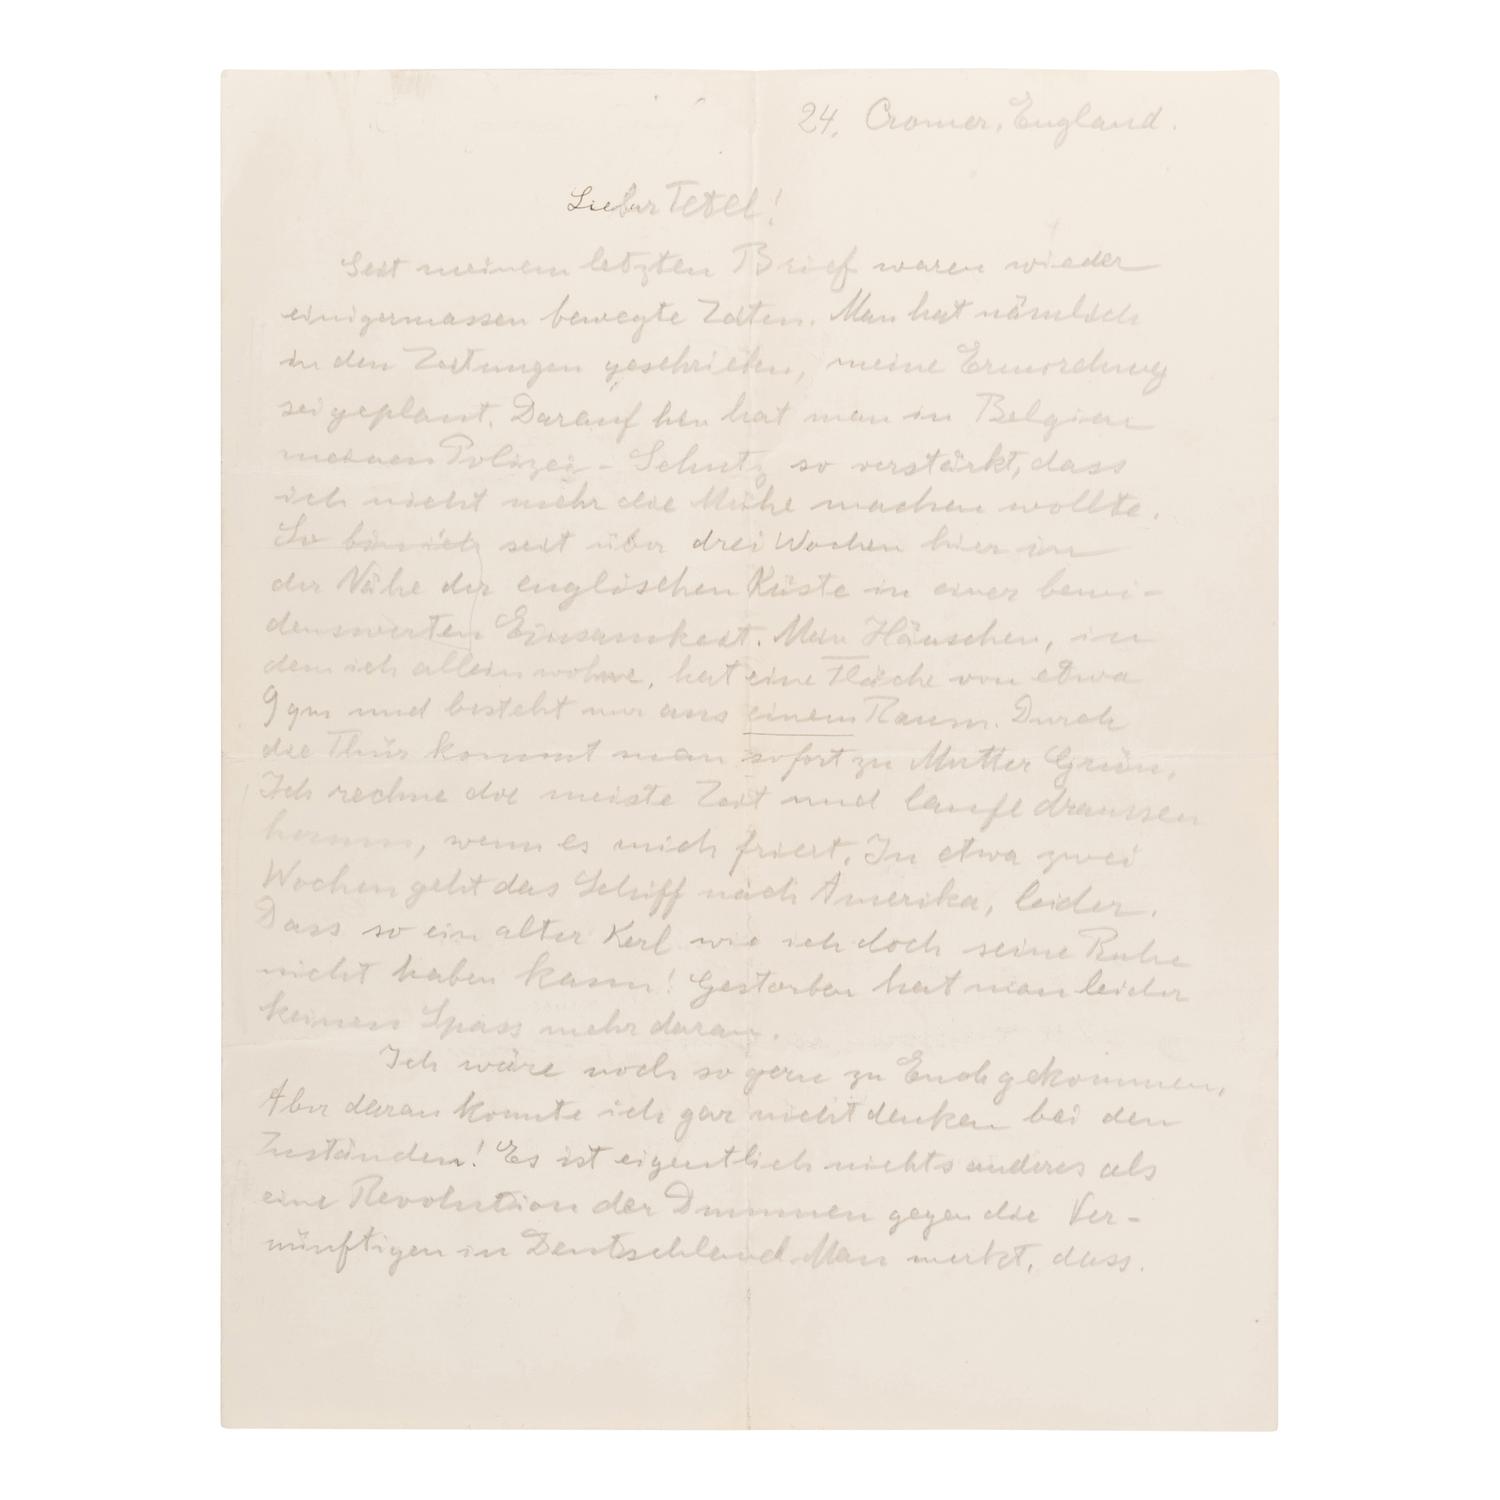 24. Cromer, England.
Lieber Tetel!
Seit meinem letzten Brief waren wieder
einigermassen bewegte Zeiten. Man hat nämlich
in den Zeitungen geschrieben, meine Ermordung
sei geplant. Darauf hin hat man in Belgien
meinen Polizei-Schutz so verstärkt, dass
ich nicht mehr die Mühe machen wollte.
So bin ich seit über drei Wochen hier in
der Nähe der englischen Küste in einer benei-
denswerten Einsamkeit. Mein Häuschen, in
dem ich allein wohne, hat eine Fläche von etwa
9 qm und besteht nur aus einem Raum. Durch
die Thür kommt man sofort zu Mutter Grün.
Ich rechne die meiste Zeit und laufe draussen
herum, wenn es mich friert. In etwa zwei
Wochen geht das Schiff nach Amerika, leider.
Dass so ein alter Kerl wie ich doch seine Ruhe
nicht haben kann! Gestorben hat man leider
keinen Spass mehr daran.
Ich wäre noch so gern zu Euch gekommen,
Aber daran konnte ich gar nicht denken bei den
Zuständen! Es ist eigentlich nichts anderes als
eine Revolution der Dummen gegen die Ver-
nünftigen in Deutschland. Man merkt, dass.